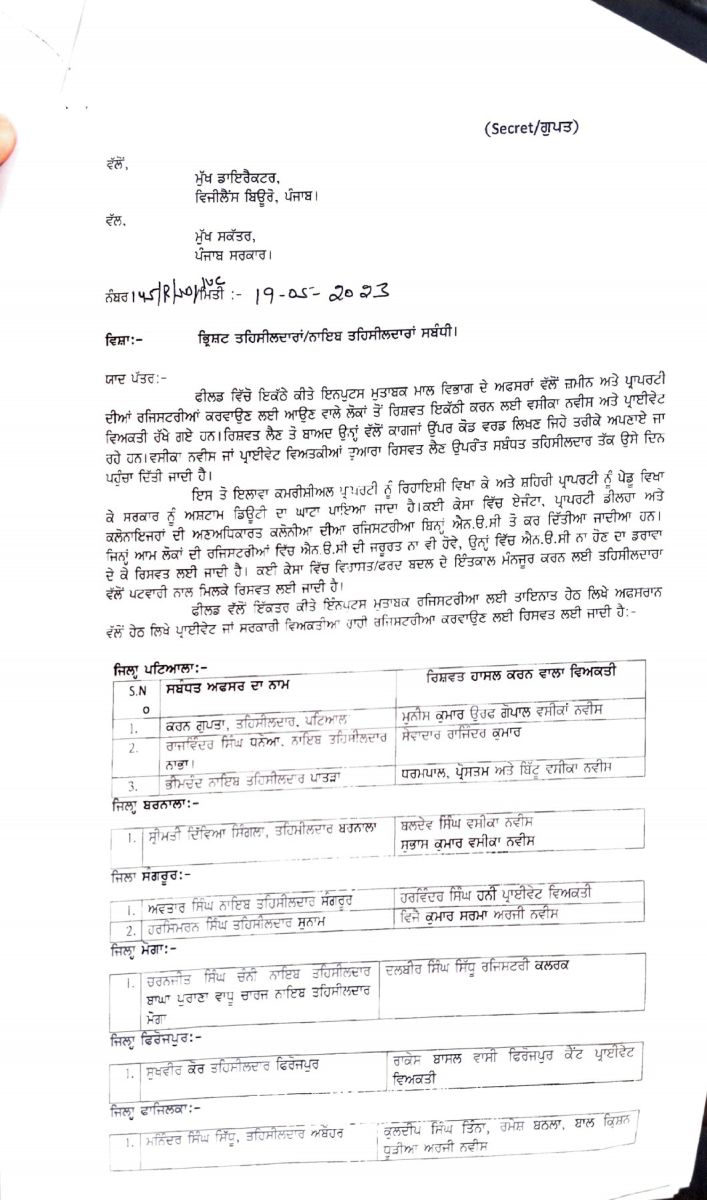 (Secret/ਗੁਪਤ)
ਵੱਲੋਂ,
ਮੁੱਖ ਡਾਇਰੈਕਟਰ,
ਵਿਜੀਲੈਂਸ ਬਿਊਰੋ, ਪੰਜਾਬ।
ਵੱਲ,
ਮੁੱਖ ਸਕੱਤਰ,
ਪੰਜਾਬ ਸਰਕਾਰ।
ਨੰਬਰ ਮਿਤੀ :- 19-05-2023
ਵਿਸ਼ਾ:- ਭ੍ਰਿਸ਼ਟ ਤਹਿਸੀਲਦਾਰਾਂ/ਨਾਇਬ ਤਹਿਸੀਲਦਾਰਾਂ ਸਬੰਧੀ।
ਯਾਦ ਪੱਤਰ:-
ਫੀਲਡ ਵਿੱਚੋ ਇਕੱਠੇ ਕੀਤੇ ਇਨਪੁਟਸ ਮੁਤਾਬਕ ਮਾਲ ਵਿਭਾਗ ਦੇ ਅਫਸਰਾਂ ਵੱਲੋਂ ਜ਼ਮੀਨ ਅਤੇ ਪ੍ਰਾਪਰਟੀ
ਦੀਆਂ ਰਜਿਸਟਰੀਆਂ ਕਰਵਾਉਣ ਲਈ ਆਉਣ ਵਾਲੇ ਲੋਕਾਂ ਤੋਂ ਰਿਸ਼ਵਤ ਇਕੱਠੀ ਕਰਨ ਲਈ ਵਸੀਕਾ ਨਵੀਸ ਅਤੇ ਪ੍ਰਾਈਵੇਟ
ਵਿਅਕਤੀ ਰੱਖੇ ਗਏ ਹਨ।ਰਿਸ਼ਵਤ ਲੈਣ ਤੋ ਬਾਅਦ ਉਨ੍ਹਾਂ ਵੱਲੋਂ ਕਾਗਜਾਂ ਉੱਪਰ ਕੋਡ ਵਰਡ ਲਿਖਣ ਜਿਹੇ ਤਰੀਕੇ ਅਪਣਾਏ ਜਾ
ਰਹੇ ਹਨ।ਵਸੀਕਾ ਨਵੀਸ ਜਾਂ ਪ੍ਰਾਈਵੇਟ ਵਿਅਤਕੀਆਂ ਦੁਆਰਾ ਰਿਸਵਤ ਲੈਣ ਉਪਰੰਤ ਸਬੰਧਤ ਤਹਿਸੀਲਦਾਰ ਤੱਕ ਉਸੇ ਦਿਨ
ਪਹੁੰਚਾ ਦਿੱਤੀ ਜਾਂਦੀ ਹੈ।
ਇਸ ਤੋ ਇਲਾਵਾ ਕਮਰੀਸ਼ੀਅਲ ਪ੍ਰਾਪਰਟੀ ਨੂੰ ਰਿਹਾਇਸੀ ਵਿਖਾ ਕੇ ਅਤੇ ਸ਼ਹਿਰੀ ਪ੍ਰਾਪਰਟੀ ਨੂੰ ਪੇਂਡੂ ਵਿਖਾ
ਕੇ ਸਰਕਾਰ ਨੂੰ ਅਸ਼ਟਾਮ ਡਿਊਟੀ ਦਾ ਘਾਟਾ ਪਾਇਆ ਜਾਂਦਾ ਹੈ।ਕਈ ਕੇਸਾ ਵਿੱਚ ਏਜੰਟਾ, ਪ੍ਰਾਪਰਟੀ ਡੀਲਰਾ ਅਤੇ
ਕਲੋਨਾਇਜਰਾਂ ਦੀ ਅਣਅਧਿਕਾਰਤ ਕਲੋਨੀਆ ਦੀਆ ਰਜਿਸਟਰੀਆ ਬਿਨ੍ਹਾਂ ਐਨ.ੳ.ਸੀ ਤੋ ਕਰ ਦਿੱਤੀਆ ਜਾਦੀਆ ਹਨ।
ਜਿਨ੍ਹਾਂ ਆਮ ਲੋਕਾਂ ਦੀ ਰਜਿਸਟਰੀਆਂ ਵਿੱਚ ਐਨ.ੳ.ਸੀ ਦੀ ਜਰੂਰਤ ਨਾ ਵੀ ਹੋਵੇ, ਉਨ੍ਹਾਂ ਵਿੱਚ ਐਨ.ੳ.ਸੀ ਨਾ ਹੋਣ ਦਾ ਡਰਾਵਾ
ਦੇ ਕੇ ਰਿਸਵਤ ਲਈ ਜਾਂਦੀ ਹੈ। ਕਈ ਕੇਸਾ ਵਿੱਚ ਵਿਰਾਸਤ/ਫਰਦ ਬਦਲ ਦੇ ਇੰਤਕਾਲ ਮੰਨਜੂਰ ਕਰਨ ਲਈ ਤਹਿਸੀਲਦਾਰਾ
ਵੱਲੋਂ ਪਟਵਾਰੀ ਨਾਲ ਮਿਲਕੇ ਰਿਸਵਤ ਲਈ ਜਾਂਦੀ ਹੈ।
ਫੀਲਡ ਵੱਲੋਂ ਇੱਕਤਰ ਕੀਤੇ ਇੰਨਪਟਸ ਮੁਤਾਬਕ ਰਜਿਸਟਰੀਆ ਲਈ ਤਾਇਨਾਤ ਹੇਠ ਲਿਖੇ ਅਫਸਰਾਨ
ਵੱਲੋਂ ਹੇਠ ਲਿਖੇ ਪ੍ਰਾਈਵੇਟ ਜਾਂ ਸਰਕਾਰੀ ਵਿਅਕਤੀਆ ਰਾਹੀ ਰਜਿਸਟਰੀਆ ਕਰਵਾਉਣ ਲਈ ਰਿਸਵਤ ਲਈ ਜਾਂਦੀ ਹੈ:-
ਜਿਲ੍ਹਾ ਪਟਿਆਲਾ:-
S.N ਸਬੰਧਤ ਅਫਸਰ ਦਾ ਨਾਮ ਰਿਸ਼ਵਤ ਹਾਸਲ ਕਰਨ ਵਾਲਾ ਵਿਅਕਤੀ
o
1. ਕਰਨ ਗੁਪਤਾ, ਤਹਿਸੀਲਦਾਰ, ਪਟਿਆਲ ਮੁਨੀਸ ਕੁਮਾਰ ਉਰਫ ਗੋਪਾਲ ਵਸੀਕਾਂ ਨਵੀਸ
2. ਰਾਜਵਿੰਦਰ ਸਿੰਘ ਧਨੋਆ, ਨਾਇਬ ਤਹਿਸੀਲਦਾਰ ਸੇਵਾਦਾਰ ਰਾਜਿੰਦਰ ਕੁਮਾਰ
ਨਾਭਾ।
3. ਭੀਮਚੰਦ ਨਾਇਬ ਤਹਿਸੀਲਦਾਰ ਪਾਤੜਾ ਧਰਮਪਾਲ, ਪ੍ਰੋਸਤਮ ਅਤੇ ਬਿੱਟੂ ਵਸੀਕਾ ਨਵੀਸ
ਜਿਲ੍ਹਾ ਬਰਨਾਲਾ:-
1. ਸ੍ਰੀਮਤੀ ਦਿੱਵਿਆ ਸਿੰਗਲਾ, ਤਹਿਸੀਲਦਾਰ ਬਰਨਾਲਾ ਬਲਦੇਵ ਸਿੰਘ ਵਸੀਕਾ ਨਵੀਸ
ਸੁਭਾਸ ਕੁਮਾਰ ਵਸੀਕਾ ਨਵੀਸ
ਜਿਲਾ ਸੰਗਰੂਰ:-
1. ਅਵਤਾਰ ਸਿੰਘ ਨਾਇਬ ਤਹਿਸੀਲਦਾਰ ਸੰਗਰੂਰ ਹਰਵਿੰਦਰ ਸਿੰਘ ਹਨੀ ਪ੍ਰਾਈਵੇਟ ਵਿਅਕਤੀ
2. ਹਰਸਿਮਰਨ ਸਿੰਘ ਤਹਿਸੀਲਦਾਰ ਸੁਨਾਮ ਵਿਜੈ ਕੁਮਾਰ ਸਰਮਾ ਅਰਜੀ ਨਵੀਸ
ਜਿਲ੍ਹਾ ਮੋਗਾ:-
1. ਚਰਨਜੀਤ ਸਿੰਘ ਚੰਨੀ ਨਾਇਬ ਤਹਿਸੀਲਦਾਰ ਦਲਬੀਰ ਸਿੰਘ ਸਿੱਧੂ ਰਜਿਸਟਰੀ ਕਲਰਕ
ਬਾਘਾ ਪੁਰਾਣਾ ਵਾਧੂ ਚਾਰਜ ਨਾਇਬ ਤਹਿਸੀਲਦਾਰ
ਮੋਗਾ
ਜਿਲ੍ਹਾ ਫਿਰੋਜਪੁਰ:-
1. ਸੁਖਵੀਰ ਕੋਰ ਤਹਿਸੀਲਦਾਰ ਫਿਰੋਜਪੁਰ ਰਾਕੇਸ ਬਾਂਸਲ ਵਾਸੀ ਫਿਰੋਜਪੁਰ ਕੈਂਟ ਪ੍ਰਾਈਵੇਟ
ਵਿਅਕਤੀ
ਜਿਲ੍ਹਾ ਫਾਜਿਲਕਾ:-
1. ਮਨਿੰਦਰ ਸਿੰਘ ਸਿੱਧੂ, ਤਹਿਸੀਲਦਾਰ ਅਬੋਹਰ ਕੁਲਦੀਪ ਸਿੰਘ ਤਿੰਨਾ, ਰਮੇਸ਼ ਬਨਲਾ, ਬਾਲ ਕ੍ਰਿਸ਼ਨ
ਧੂੜੀਆ ਅਰਜੀ ਨਵੀਸ